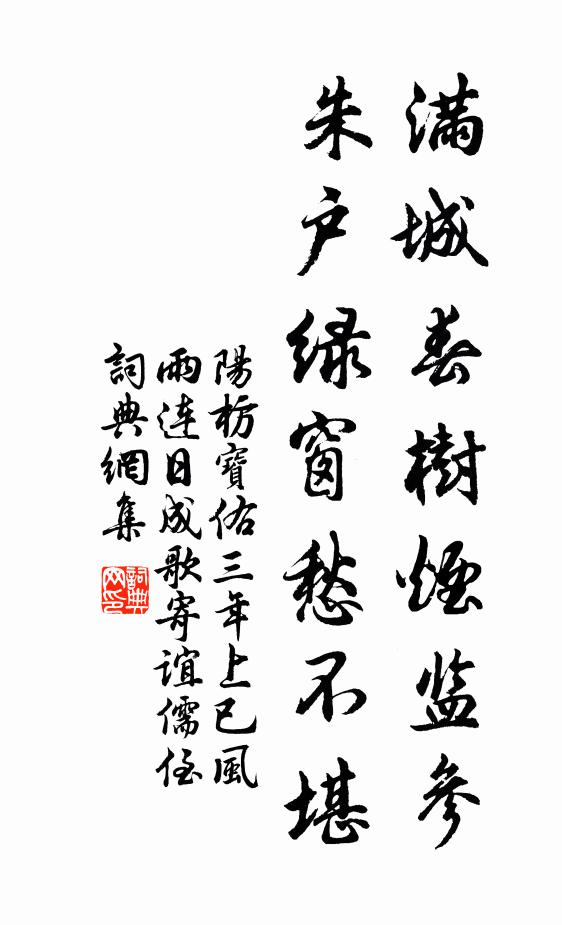 滿城春樹煙监參
朱户绿窗愁不堪
陽枋寶佑三年上巳風
雨連日成歌寄谊儒侄
詞典網集
詞典
网印